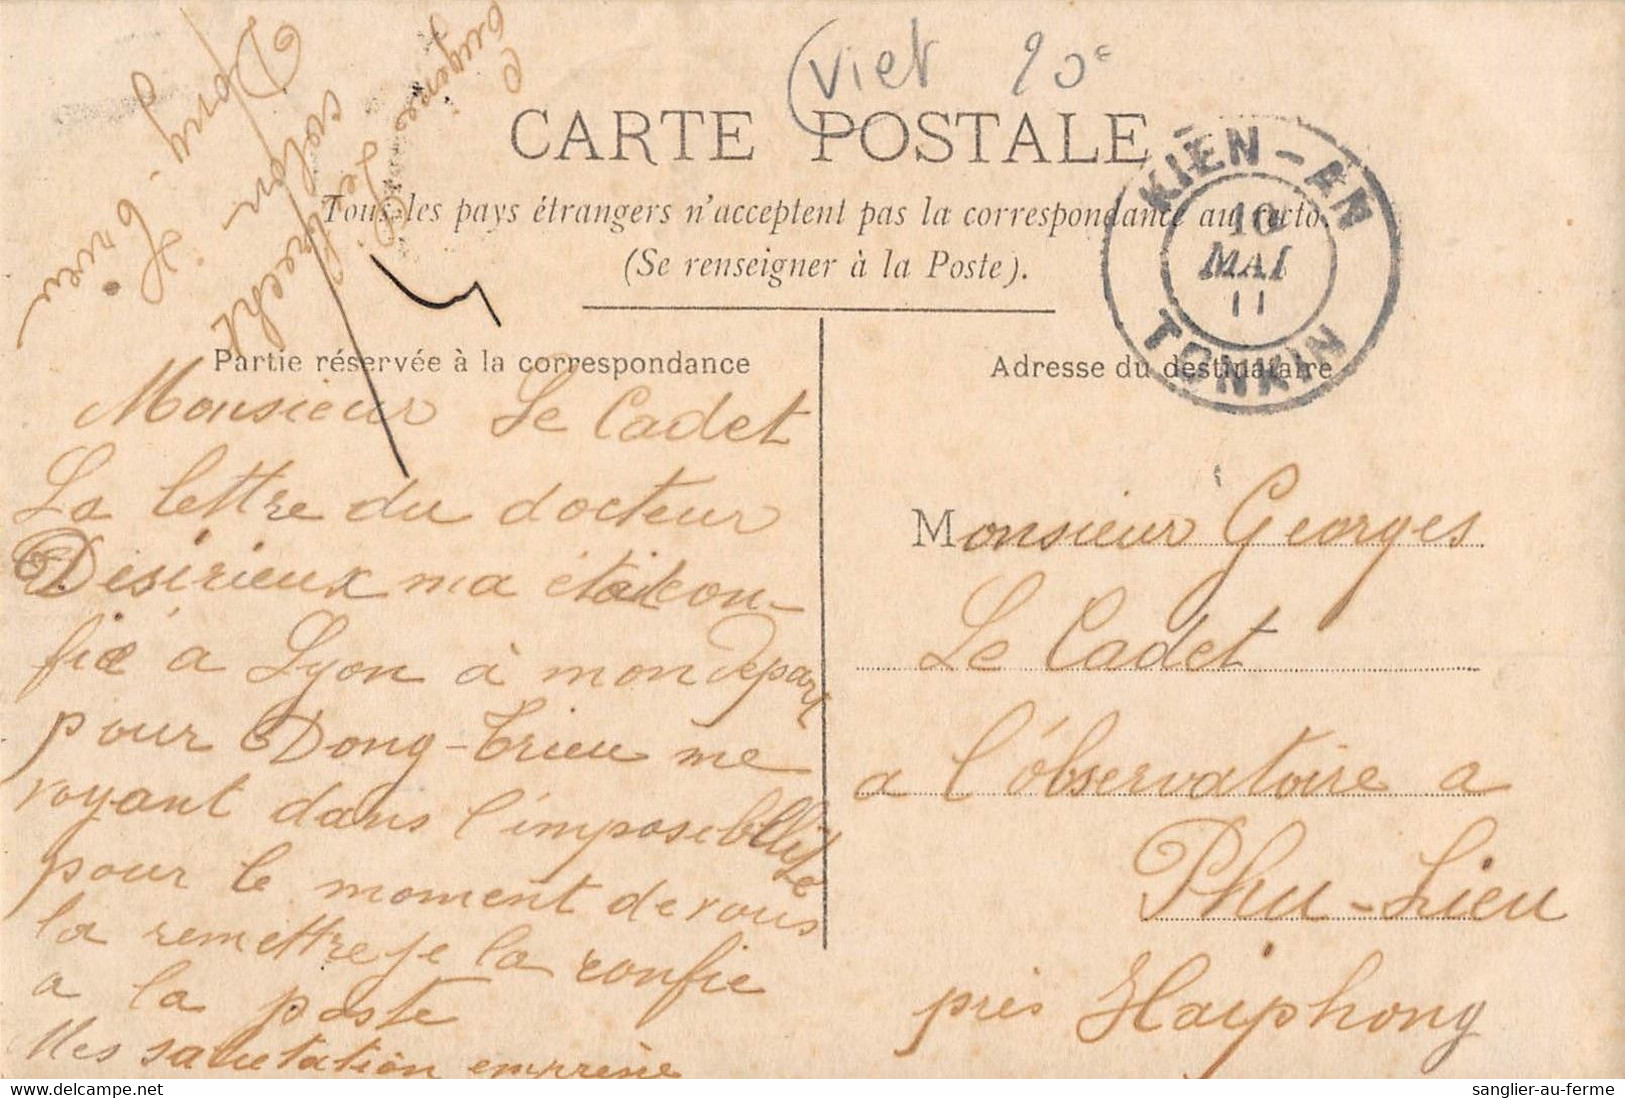 viet 20c
CARTE POSTALE
Tous les pays étrangers n'acceptent pas la correspondance au recto.
(Se renseigner à la Poste).
KIEN-AN
10
MAI
11
TONKIN
Partie réservée à la correspondance
Monsieur Le Cadet
La lettre du docteur
Désirieux ma était con-
fié a Lyon à mon Depart
pour Dong-Trieu me
voyant dans l'impossibllité
pour le moment de vous
la remettre je la confie
a la poste
Mes salutation emprése
Eugenie
colon
Dong
Trieu
Adresse du destinataire
Monsieur Georges
Le Cadet
a l'observatoire a
Phu-Lieu
près Haiphong
delcampe.net
sanglier-au-ferme